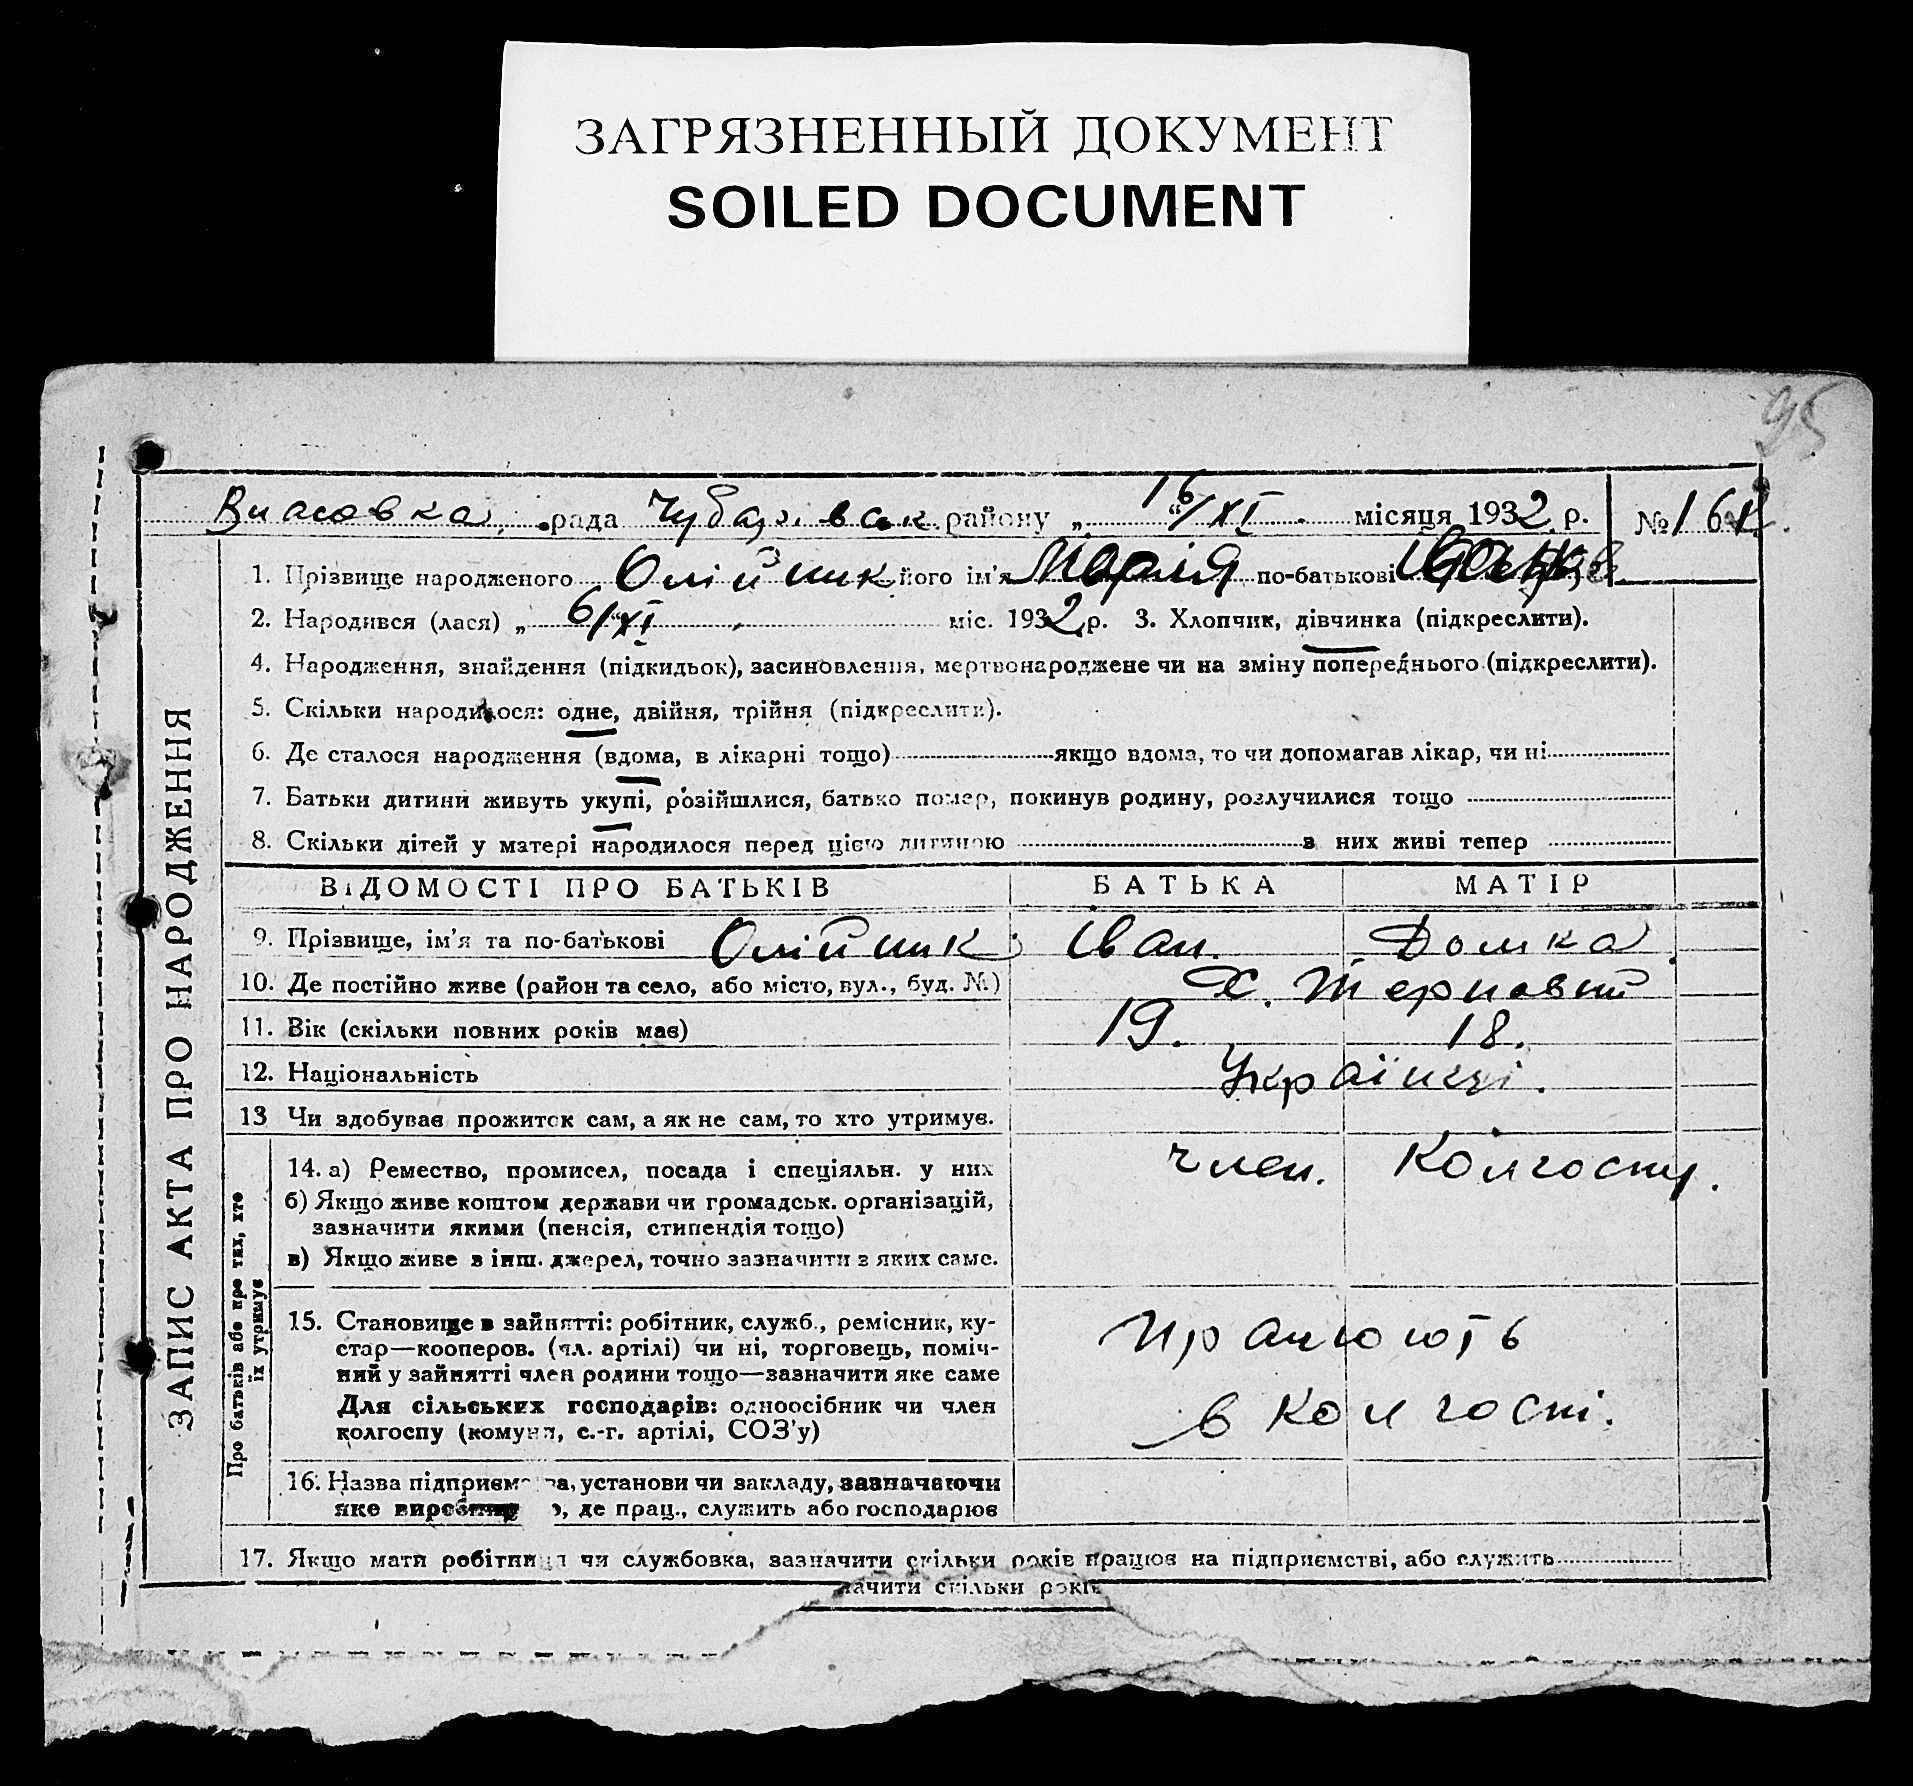 ЗАГРЯЗНЕННЫЙ ДОКУМЕНТ
SOILED DOCUMENT
95
рада района „ 16/XI місяця 1932 р. № 16
1. Прізвище народженого Олійник його ім'я Марія по-батькові
2. Народився (лася) „ 6/XI міс. 1932 р. 3. Хлопчик, дівчинка (підкреслити).
4. Народження, знайдення (підкидьок), засиновлення, мертвонароджене чи на зміну попереднього (підкреслити).
5. Скільки народилося: одне, двійня, трійня (підкреслити).
6. Де сталося народження (вдома, в лікарні тощо) якщо вдома, то чи допомагав лікар, чи ні
7. Батьки дитини живуть укупі, розійшлися, батько помер, покинув родину, розлучилися тощо
8. Скільки дітей у матері народилося перед цією дитиною з них живі тепер
ЗАПИС АКТА ПРО НАРОДЖЕННЯ
ВІДОМОСТІ ПРО БАТЬКІВ БАТЬКА МАТІР
9. Прізвище, ім'я та по-батькові Олійник Іван. Домка
10. Де постійно живе (район та село, або місто, вул., буд. №) х. Терновий
11. Вік (скільки повних років має) 19. 18.
12. Національність Українці.
13 Чи здобуває прожиток сам, а як не сам, то хто утримує.
Про батьків або про тих, хто
їх утримує
14. а) Ремество, промисел, посада і спеціяльн. у них член. колгоспу.
б) Якщо живе коштом держави чи громадськ. організацій,
зазначити якими (пенсія, стипендія тощо)
в) Якщо живе з інш. джерел, точно зазначити з яких саме.
15. Становище в зайнятті: робітник, служб., ремісник, ку-
стар—кооперов. (чл. артілі) чи ні, торговець, поміч-
ний у зайнятті член родини тощо—зазначити яке саме
Для сільських господарів: одноосібник чи член
колгоспу (комуни, с.-г. артілі, СОЗ'у)
працюють
в колгоспі.
16. Назва підприєм ва, установи чи закладу, зазначаючи
яке , де прац., служить або господарює
17. Якщо мати робітниця чи службовка, зазначити скільки років працює на підприємстві, або служить
начити скільки років